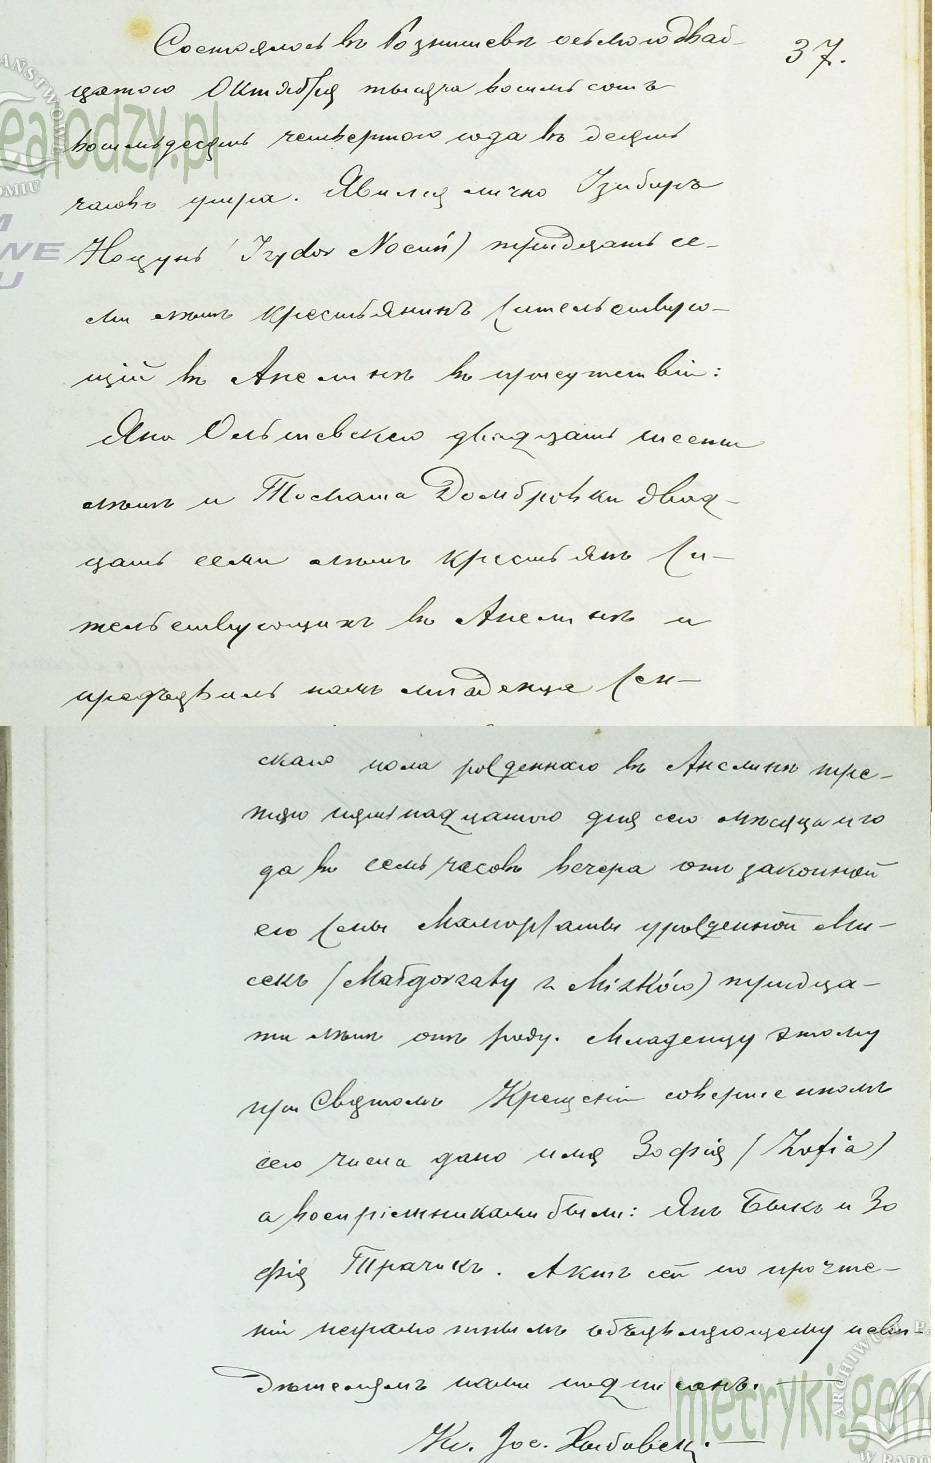 37.
Состоялось въ Рознишевѣ осьмого двад-
цатого Октября тысяча восемьсотъ
восемьдесятъ четвертого года въ десять
часовъ утра. Явился лично Изидоръ
Ноцунь (Izydor Nocuń) тридцать се-
ми лѣтъ крестьянинъ жительствую-
щій въ Анелинѣ въ присутствіи:
Яна Ольшевского двадцать шести
лѣтъ и Томаша Домбровки двад-
цать семи лѣтъ крестьянъ жи-
тельствующихъ въ Анелинѣ и
предъявилъ намъ младенца жен-
ского пола рожденного въ Анелинѣ тре-
тяго пятнадцатого дня сего мѣсяца и го
да въ семь часовъ вечера отъ законной
его жены Малгоржаты урожденной Ми-
секъ (Małgorzaty z Miśków) тридца-
ти лѣтъ отъ роду. Младенцу этому
при Святомъ Крещеніи совершенномъ
сего числа дано имя Зофія (Zofia)
а воспріемниками были: Янъ Быкъ и Зо
фія Трачикъ. Актъ сей по прочте-
ніи неграмотнымъ объявляющему и сви-
дѣтелямъ нами подписанъ. —
Кс. Jos.
ealodzy.pl
metryki.gene